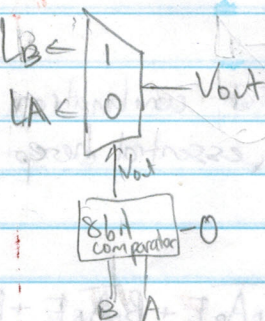 LB
1
Vout
LA
0
Vout
8bit
comparator
-0
B A